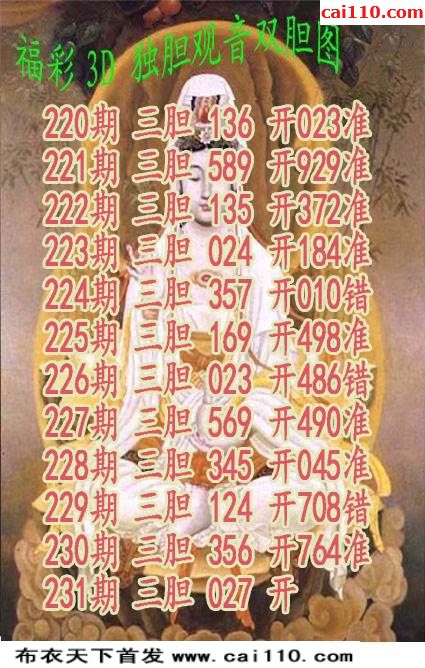 cai110.com
福彩3D 独胆观音双胆图
220期 三胆 136 开023准
221期 三胆 589 开929准
222期 三胆 135 开372准
223期 三胆 024 开184准
224期 三胆 357 开010错
225期 三胆 169 开498准
226期 三胆 023 开486错
227期 三胆 569 开490准
228期 三胆 345 开045准
229期 三胆 124 开708错
230期 三胆 356 开764准
231期 三胆 027 开
布衣天下首发 www.cai110.com